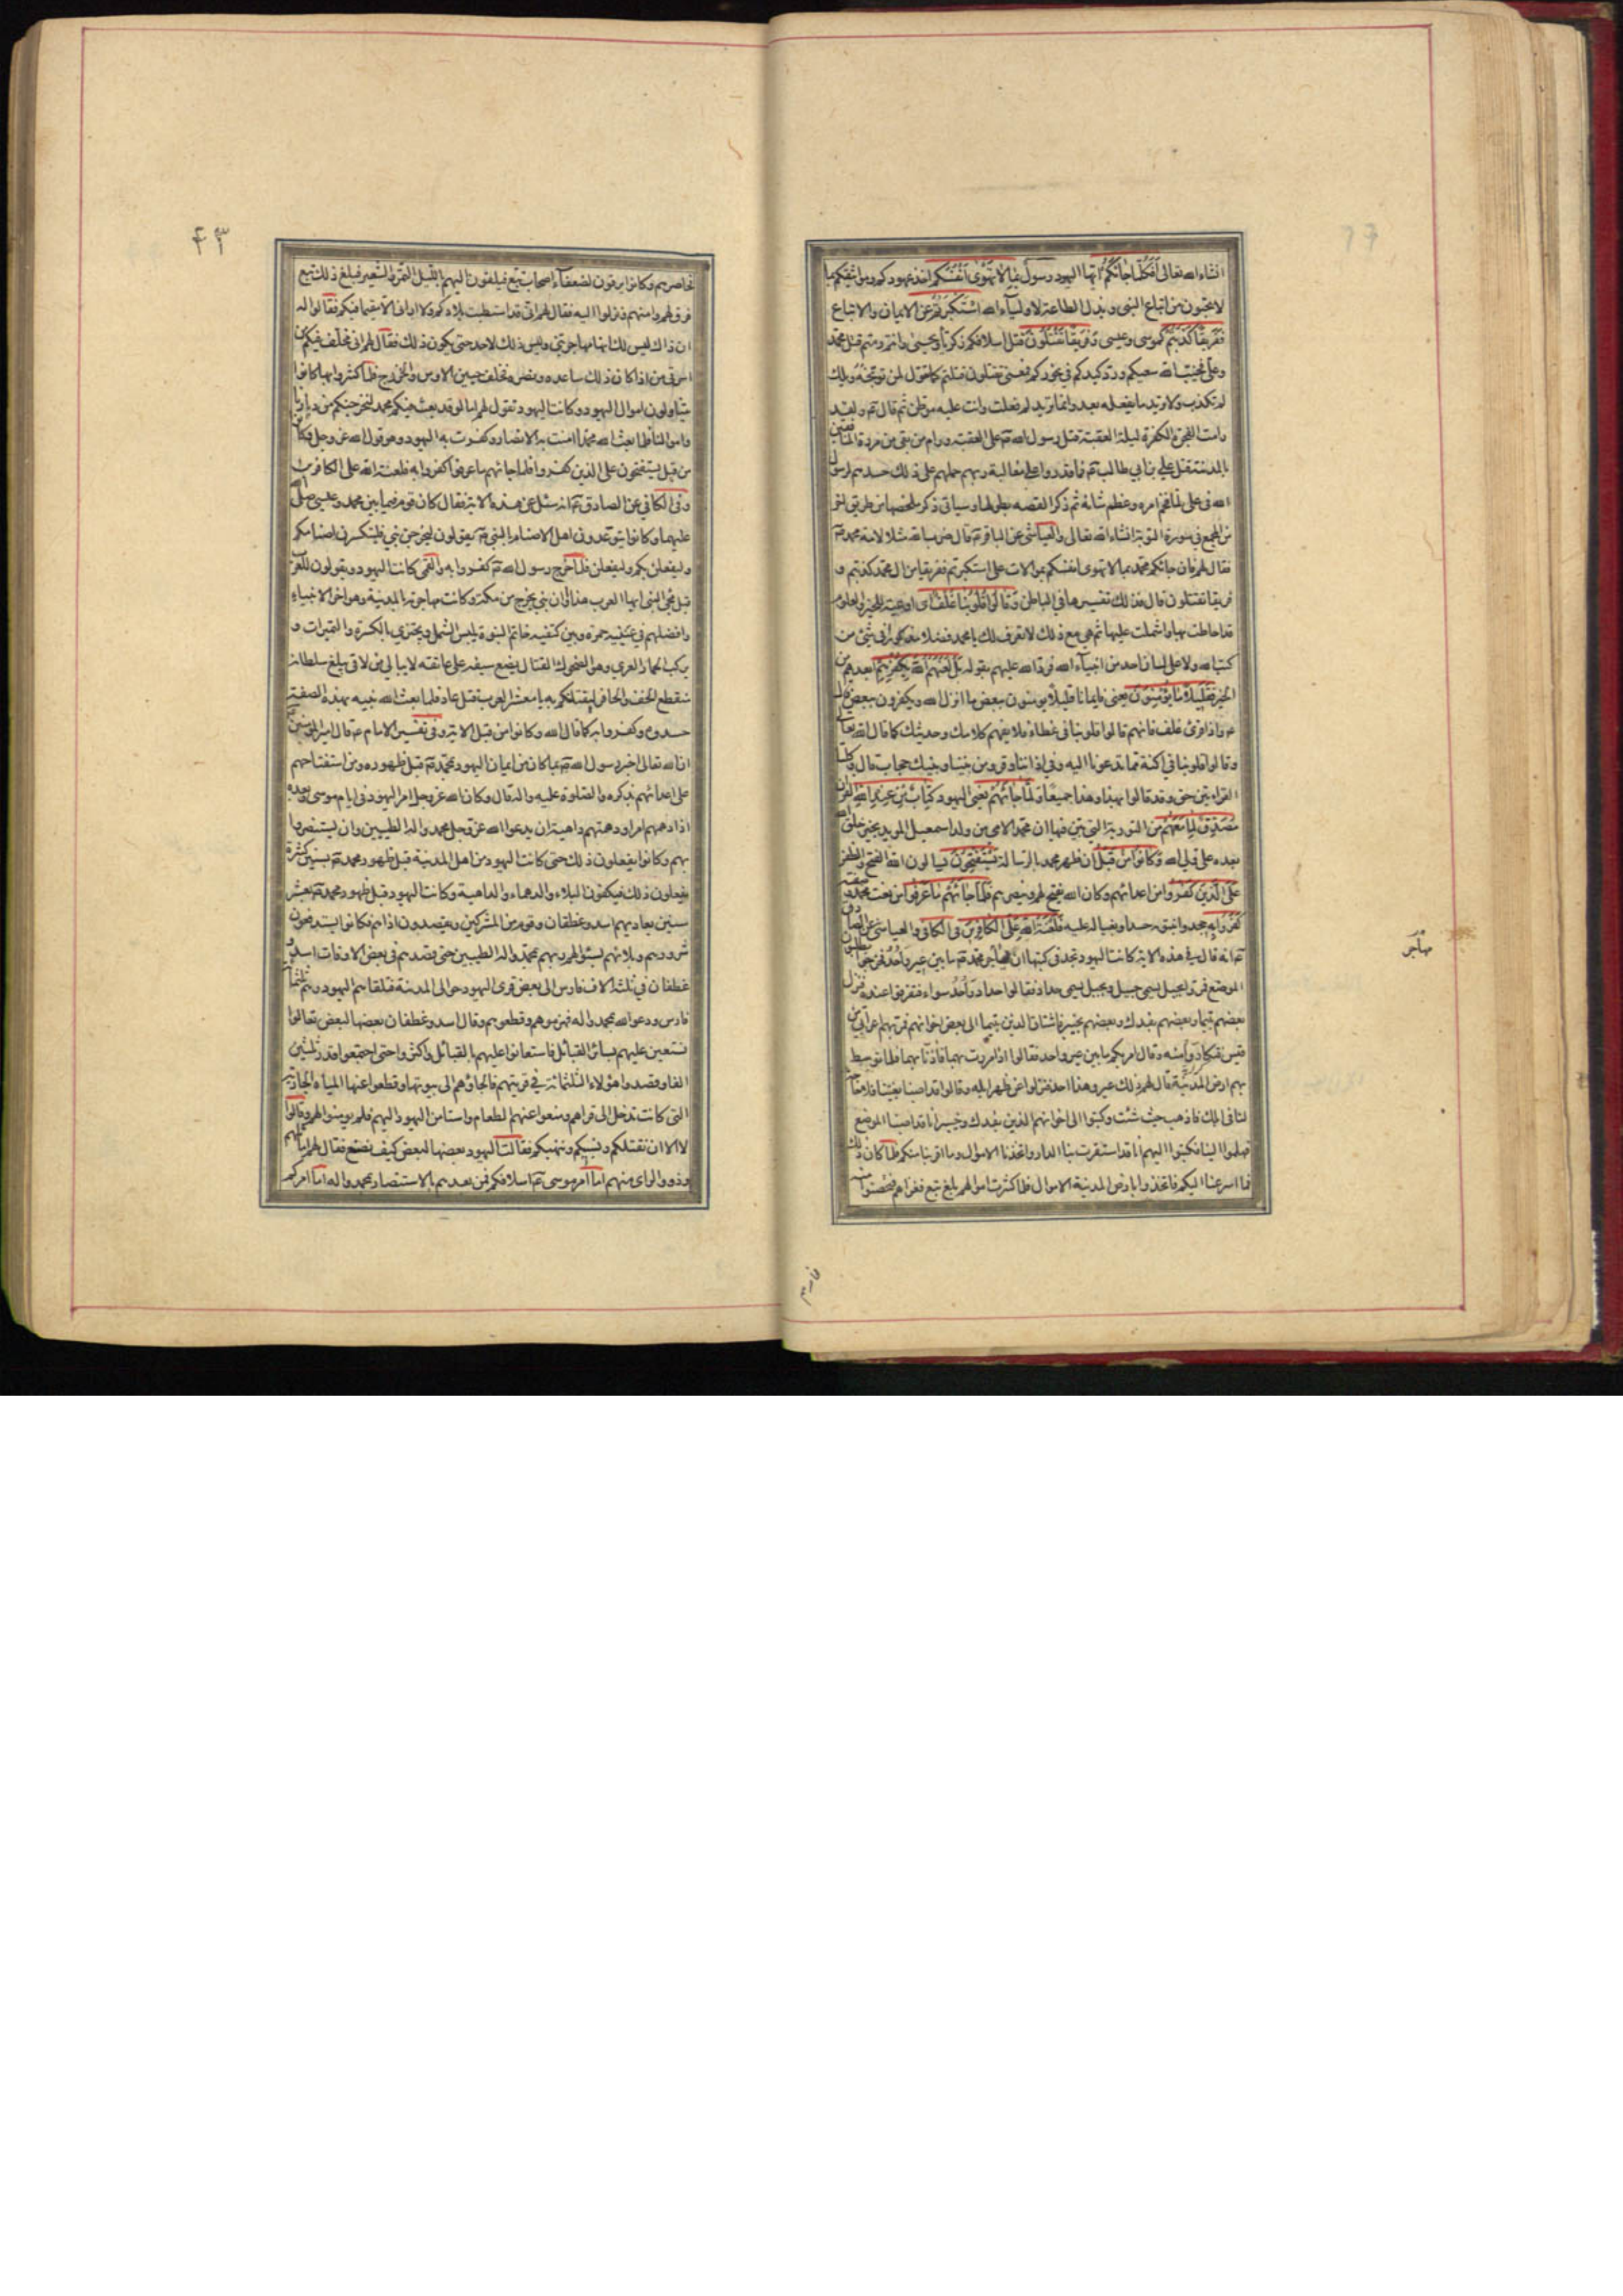 انشاء الله تعالى أفكلما جاءكم ايها اليهود رسول بما لا تهوى أنفسكم اخذ عهودكم ومواثيقكم بما
لا تحبون من اتباع النبي وبذل الطاعة لاولياء الله استكبرتم عن الايمان والاتباع
ففريقا كذبتم كموسى وعيسى وفريقا تقتلون قتل اسلافكم زكريا ويحيى وانتم رمتم قتل محمد
وعلي فخيب الله سعيكم ورد كيدكم في نحوركم فمعنى تقتلون قتلتم كما تقول لمن توبخه ويلك
لم تكذب ولا تريد ما يفعله بعد وانما تريد لم فعلت وانت عليه موطن ثم قال ع ولقد
رامت الفجرة الكفرة ليلة العقبة قتل رسول الله ص على العقبة ورام من بقي من مردة المنافقين
بالمدينة قتل علي بن ابي طالب ع فما قدروا على مغالبة ربهم حملهم على ذلك حسدهم لرسول
الله في علي لما فخم امره وعظم شانه ثم ذكر القصة بطولها وسياتي ذكر ملخصها من طريق اخر
من المجمع في سورة التوبة انشاء الله تعالى والعياشي عن الباقر ع قال ضرب الله مثلا لامة محمد ص
فقال لهم فان جاءكم محمد بما لا تهوى انفسكم بموالات علي استكبرتم ففريقا من ال محمد كذبتم و
فريقا تقتلون قال فذلك تفسيرها في الباطن وقالوا قلوبنا غلف اى اوعية للخير والعلوم
قد احاطت بها واشتملت عليها ثم هي مع ذلك لا تعرف لك يا محمد فضلا مذكورا في شئ من
كتب الله ولا على لسان احد من انبياء الله فرد الله عليهم بقوله بل لعنهم الله بكفرهم ابعدهم من
الخير فقليلا ما يؤمنون يعني فايمانا قليلا يؤمنون ببعض ما انزل الله ويكفرون ببعض قال
ع واذا قرئ غلف فانهم قالوا قلوبنا في غطاء فلا نفهم كلامك وحديثك كما قال الله تعالى
وقالوا قلوبنا في اكنة مما تدعونا اليه وفي اذاننا وقر ومن بيننا وبينك حجاب قال وكلتا
القراءتين حق وقد قالوا بهذا وهذا جميعا ولما جاءهم يعني اليهود كتاب من عند الله القران
مصدق لما معهم من التورية التي بين فيها ان محمدا الامي من ولد اسمعيل المؤيد بخير خلق الله
بعده علي ولي الله وكانوا من قبل ان ظهر محمد بالرسالة يستفتحون يسالون الله الفتح والظفر
على الذين كفروا من اعدائهم وكان الله يفتح لهم وينصرهم فلما جاءهم ما عرفوا من نعت محمد وصفته
كفروا به جحدوا نبوته حسدا وبغيا له عليه فلعنة الله على الكافرين في الكافي والعياشي عن الصادق
ع انه قال في هذه الاية كانت اليهود تجد في كتبها ان مهاجر محمد ص ما بين عير واحد فخرجوا يطلبون
الموضع فمروا بجبل يسمى جبيل وبجبل يسمى حداد فقالوا حداد واحد سواء فتفرقوا عنده فنزل
بعضهم بتيماء وبعضهم بفدك وبعضهم بخيبر فاشتاق الذين بتيماء الى بعض اخوانهم فمر بهم اعرابي من
قيس فتكاروا منه وقال امر بكم ما بين عير واحد فقالوا اذا مررت بهما فآذنا بهما فلما توسط
بهم ارض المدينة قال لهم ذلك عير وهذا احد فنزلوا عن ظهر ابله وقالوا قد اصبنا بغيتنا فلا حاجة
لنا في ابلك فاذهب حيث شئت وكتبوا الى اخوانهم الذين بفدك وخيبر انا قد اصبنا الموضع
فهلموا الينا فكتبوا اليهم انا قد استقرت بنا الدار واتخذنا الاموال وما اقربنا منكم فاذا كان ذلك
فما اسرعنا اليكم فاتخذوا بارض المدينة الاموال فلما كثرت اموالهم بلغ تبع فغزاهم فتحصنوا منه
مهاجر
فحاصرهم
۴۳
فحاصرهم وكانوا يرقون لضعفاء اصحاب تبع فيلقون اليهم بالليل التمر والشعير فبلغ ذلك تبع
فرق لهم وامنهم فنزلوا اليه فقال لهم اني قد استطبت بلادكم ولا اراني الا مقيما فيكم فقالوا له
ان ذاك ليس لك انها مهاجر نبي وليس ذلك لاحد حتى يكون ذلك فقال لهم اني مخلف فيكم من
اسرتي من اذا كان ذلك ساعده ونصره فخلف حيين الاوس والخزرج فلما كثروا بها كانوا
يتناولون اموال اليهود وكانت اليهود تقول لهم اما لو قد بعث فيكم محمد لنخرجنكم من ديارنا
واموالنا فلما بعث الله محمدا امنت به الانصار وكفرت به اليهود وهو قول الله عز وجل وكانوا
من قبل يستفتحون على الذين كفروا فلما جاءهم ما عرفوا كفروا به فلعنة الله على الكافرين
وفي الكافي عن الصادق ع انه سئل عن هذه الاية فقال كان قوم فيما بين محمد وعيسى صلى الله
عليهما وكانوا يتوعدون اهل الاصنام بالنبي ص ويقولون ليخرجن نبي فليكسرن اصنامكم
وليفعلن بكم وليفعلن فلما خرج رسول الله ص كفروا به والقمي كانت اليهود ويقولون للعرب
قبل مجئ النبي ايها العرب هذا اوان نبي يخرج من مكة وكانت مهاجرته بالمدينة وهو اخر الانبياء
وافضلهم في عينيه حمرة وبين كتفيه خاتم النبوة يلبس الشملة ويجتزي بالكسرة والتميرات و
يركب الحمار العري وهو الضحوك القتال يضع سيفه على عاتقه لا يبالي من لاقى يبلغ سلطانه
منقطع الخف والحافر ليقتلنكم به يا معشر العرب قتل عاد فلما بعث الله نبيه بهذه الصفة
حسدوه وكفروا به كما قال الله وكانوا من قبل الاية وفي تفسير الامام ع قال امير المؤمنين ع
ان الله تعالى اخبر رسول الله ص بما كان من ايمان اليهود بمحمد ص قبل ظهوره ومن استفتاحهم
على اعدائهم بذكره والصلوة عليه واله قال وكان الله عز وجل امر اليهود في ايام موسى وبعده
اذا دهمهم امر او دهتهم داهية ان يدعوا الله عز وجل بمحمد واله الطيبين وان يستنصروا
بهم وكانوا يفعلون ذلك حتى كانت اليهود من اهل المدينة قبل ظهور محمد ص بسنين كثيرة
يفعلون ذلك فيكفون البلاء والدهماء والداهية وكانت اليهود قبل ظهور محمد ص بعشر
سنين يعاديهم اسد وغطفان وقوم من المشركين ويقصدون اذاهم فكانوا يستدفعون
شرورهم وبلائهم بسؤالهم ربهم بمحمد واله الطيبين حتى قصدهم في بعض الاوقات اسد و
غطفان في ثلثة الاف فارس الى بعض قرى اليهود حوالى المدينة فتلقاهم اليهود وهم ثلثمائة
فارس ودعوا الله بمحمد واله فهزموهم وقطعوهم وقال اسد وغطفان بعضها لبعض تعالوا
نستعين عليهم بسائر القبائل فاستعانوا عليهم بالقبائل واكثروا حتى اجتمعوا قدر ثلثين
الفا وقصدوا هؤلاء الثلثمائة في قريتهم فالجاؤهم الى بيوتها وقطعوا عنها المياه الجارية
التي كانت تدخل الى قراهم ومنعوا عنهم الطعام واستامن اليهود اليهم فلم يؤمنوهم وقالوا
لا الا ان نقتلكم ونسبيكم وننهبكم فقالت اليهود بعضها لبعض كيف نصنع فقال لهم اماثلهم
وذوو الراى منهم اما امر موسى ع اسلافكم فمن بعدهم بالاستنصار بمحمد واله اما امركم